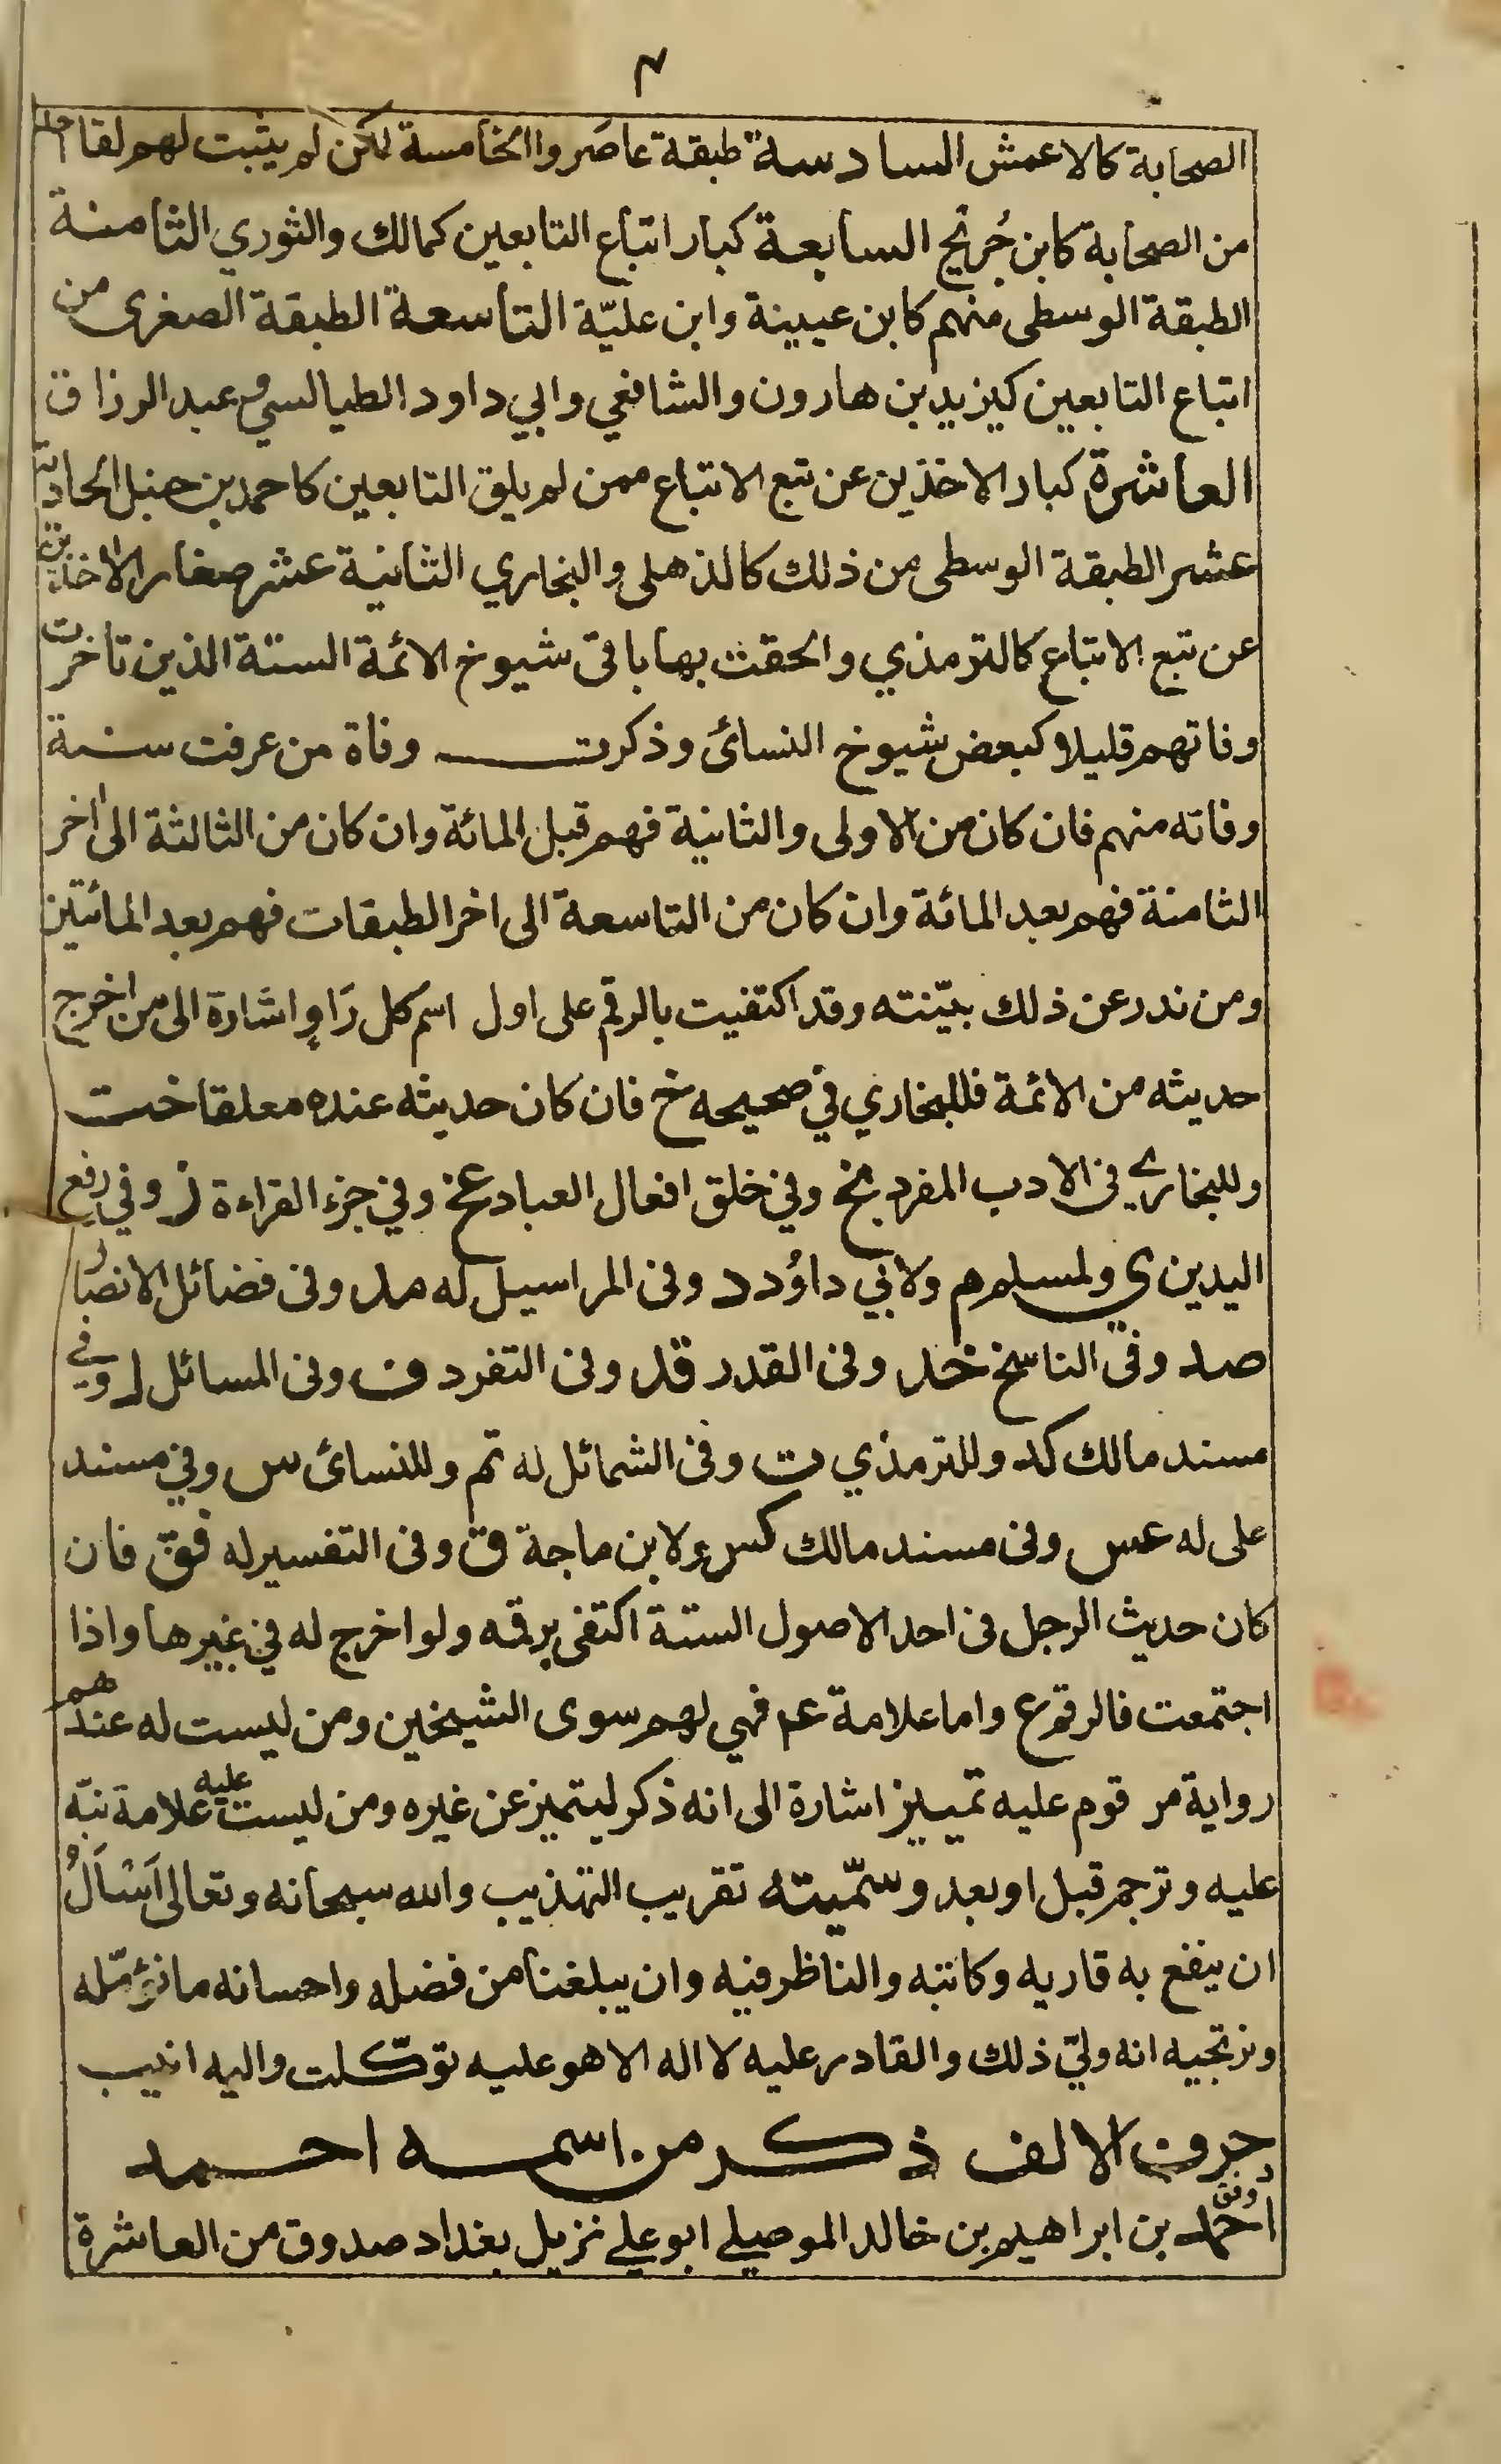 ٣
الصحابة كالاعمش السادسة طبقة عاصَروا الخامسة لكن لم يثبت لهم لقا احد
من الصحابة كابن جُريج السابعة كبار اتباع التابعين كمالك والثوري الثامنة
الطبقة الوسطى منهم كابن عيينة وابن عليّة التاسعة الطبقة الصغرى من
اتباع التابعين كيزيد بن هارون والشافعي وابي داود الطيالسي وعبد الرزاق
العاشرة كبار الاخذين عن تبع الاتباع ممن لم يلق التابعين كاحمد بن حنبل الحادية
عشر الطبقة الوسطى من ذلك كالذهلى والبخاري الثانية عشر صغار الاخذين
عن تبع الاتباع كالترمذي والحقت بها باقى شيوخ الائمة الستة الذين تاخرت
وفاتهم قليلا كبعض شيوخ النسائى وذكرت وفاة من عرفت سنة
وفاته منهم فان كان من الاولى والثانية فهم قبل المائة وان كان من الثالثة الى اخر
الثامنة فهم بعد المائة وان كان من التاسعة الى اخر الطبقات فهم بعد المائتين
ومن ندر عن ذلك بيّنته وقد اكتفيت بالرقم على اول اسم كل رَاوٍ اشارة الى من اخرج
حديثه من الائمة فللبخاري في صحيحه خ فان كان حديثه عنده معلقا خت
وللبخاري فى الادب المفرد بخ وفي خلق افعال العباد عخ وفي جزء القراءة ز وفي رفع
اليدين ي ولمسلم م ولابي داوُد د وفى المراسيل له مد وفى فضائل الانصار
صد وفى الناسخ خد وفى القدر قد وفى التفرد ف وفى المسائل ل وفي
مسند مالك كد وللترمذي ت وفى الشمائل له تم وللنسائى س وفي مسند
على له عس وفى مسند مالك كس ولابن ماجة ق وفى التفسير له فق فان
كان حديث الرجل فى احد الاصول الستة اكتفى برقمه ولو اخرج له في غيرها واذا
اجتمعت فالرقم ع واما علامة عم فهي لهم سوى الشيخين ومن ليست له عندهم
رواية مرقوم عليه تمييز اشارة الى انه ذكر ليتميز عن غيره ومن ليست عليه علامة نبّه
عليه وترجم قبل او بعد وسمّيته تقريب التهذيب والله سبحانه وتعالى اَسْاَلُ
ان ينفع به قاريه وكاتبه والناظر فيه وان يبلغنا من فضله واحسانه ما نؤمّله
ونرتجيه انه وليّ ذلك والقادر عليه لا اله الا هو عليه توكّلت واليه انيب
حرف الالف ذكر من اسمه احمد
د وفق
احمد بن ابراهيم بن خالد الموصلي ابو علي نزيل بغداد صدوق من العاشرة